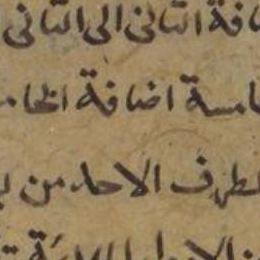 افة الثاني الى الثاني
امسة اضافة الخا
لطرف الاحد من